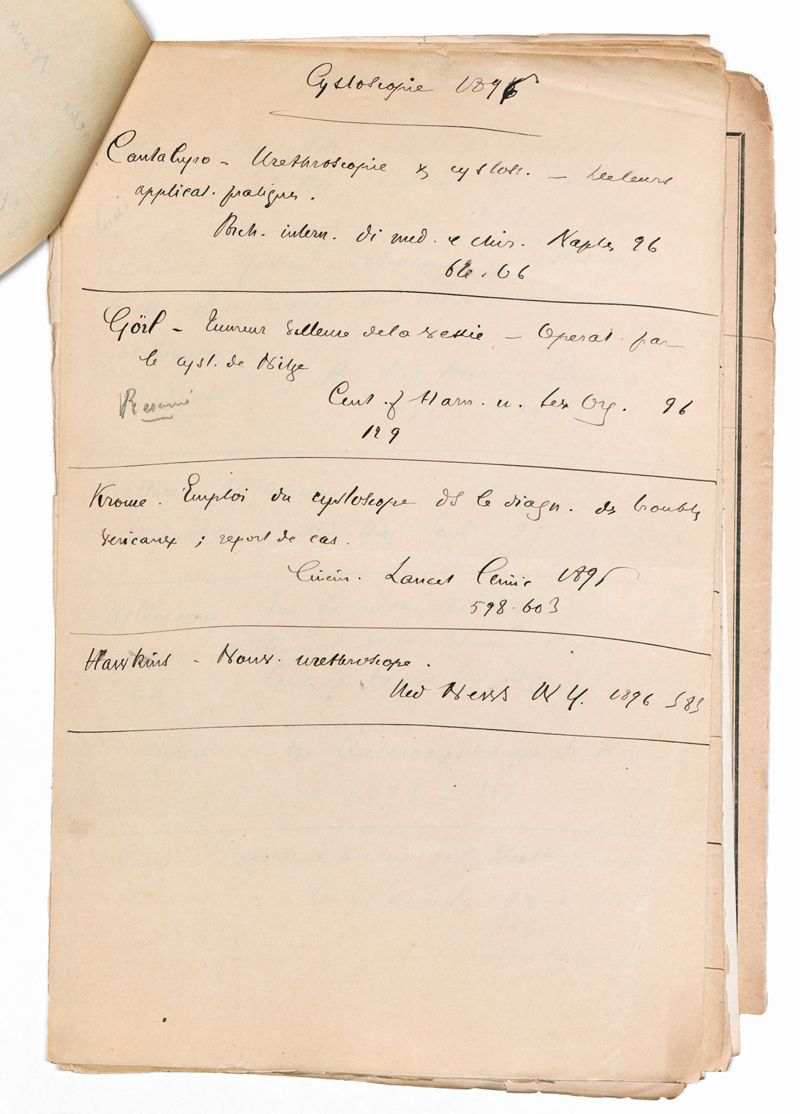 Cystoscopie 1896
Cantalupo – Urethroscopie & cystosc. – et leurs
applicat. pratiques.
Arch. intern. di med. e chir. Naples 96
66
Görl – Tumeur villeuse de la vessie – Operat. par
le cyst. de Nitze
Resumé
Cent. f Harn. u. Sex Org. 96
129
Krome. Emploi du cystoscope ds le diagn. ds troubles
vesicaux ; report de cas.
Cincin. Lancet Clinic 1896
598-603
Hawkins – Nouv. urethroscope.
Med News N Y. 1896 583